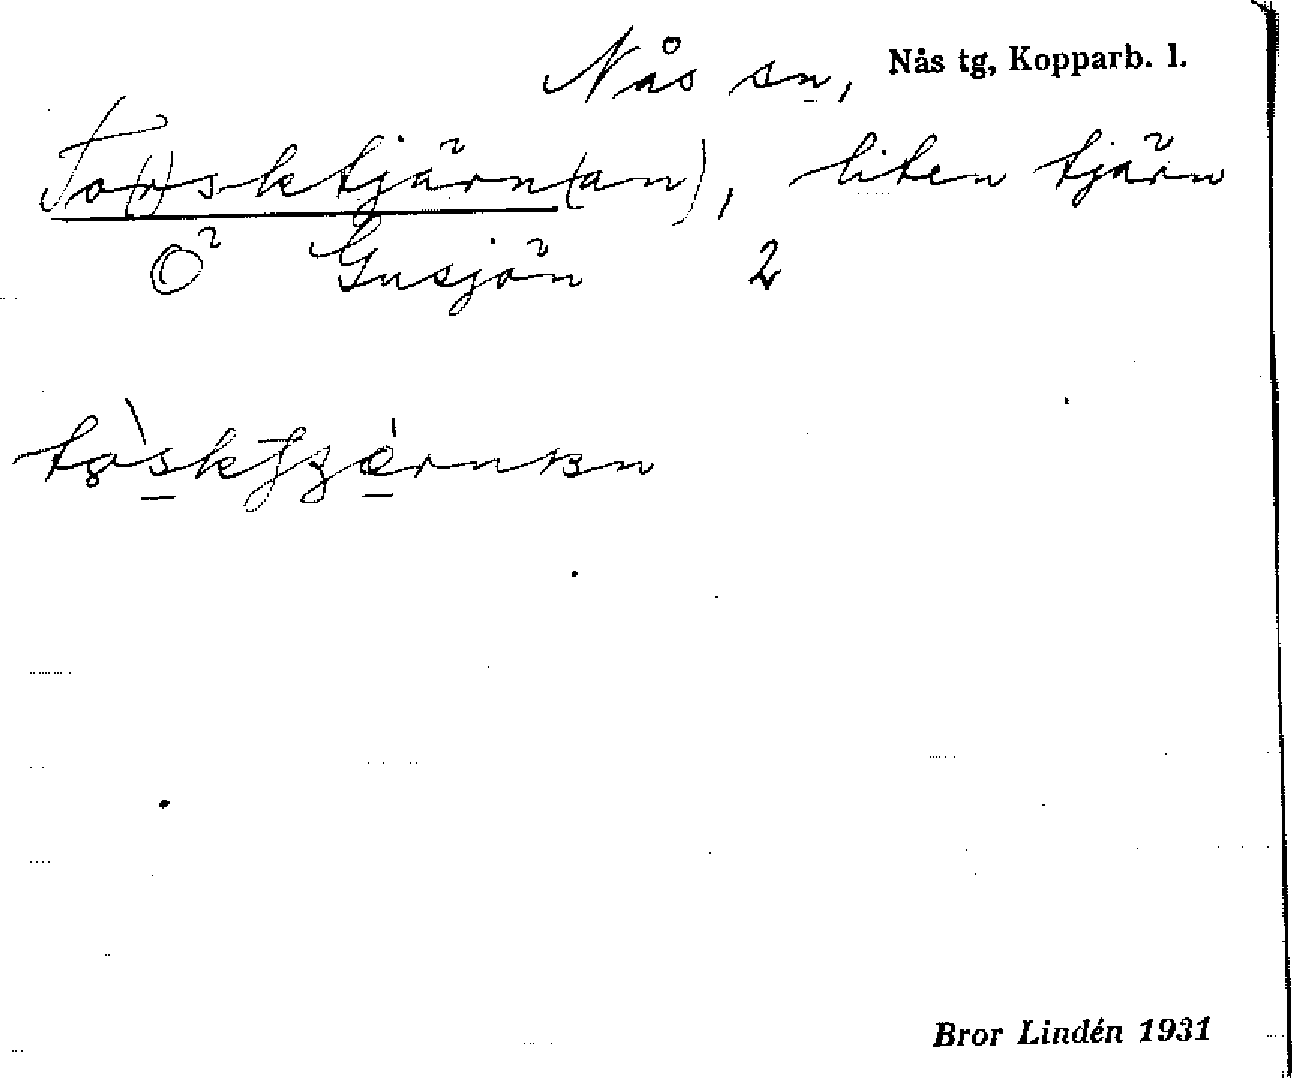 Nås sn, Nås tg, Kopparb. l.
To(r)sktjärn(an), liten tjärn
Ö Gusjön 2
Bror Lindén 1931